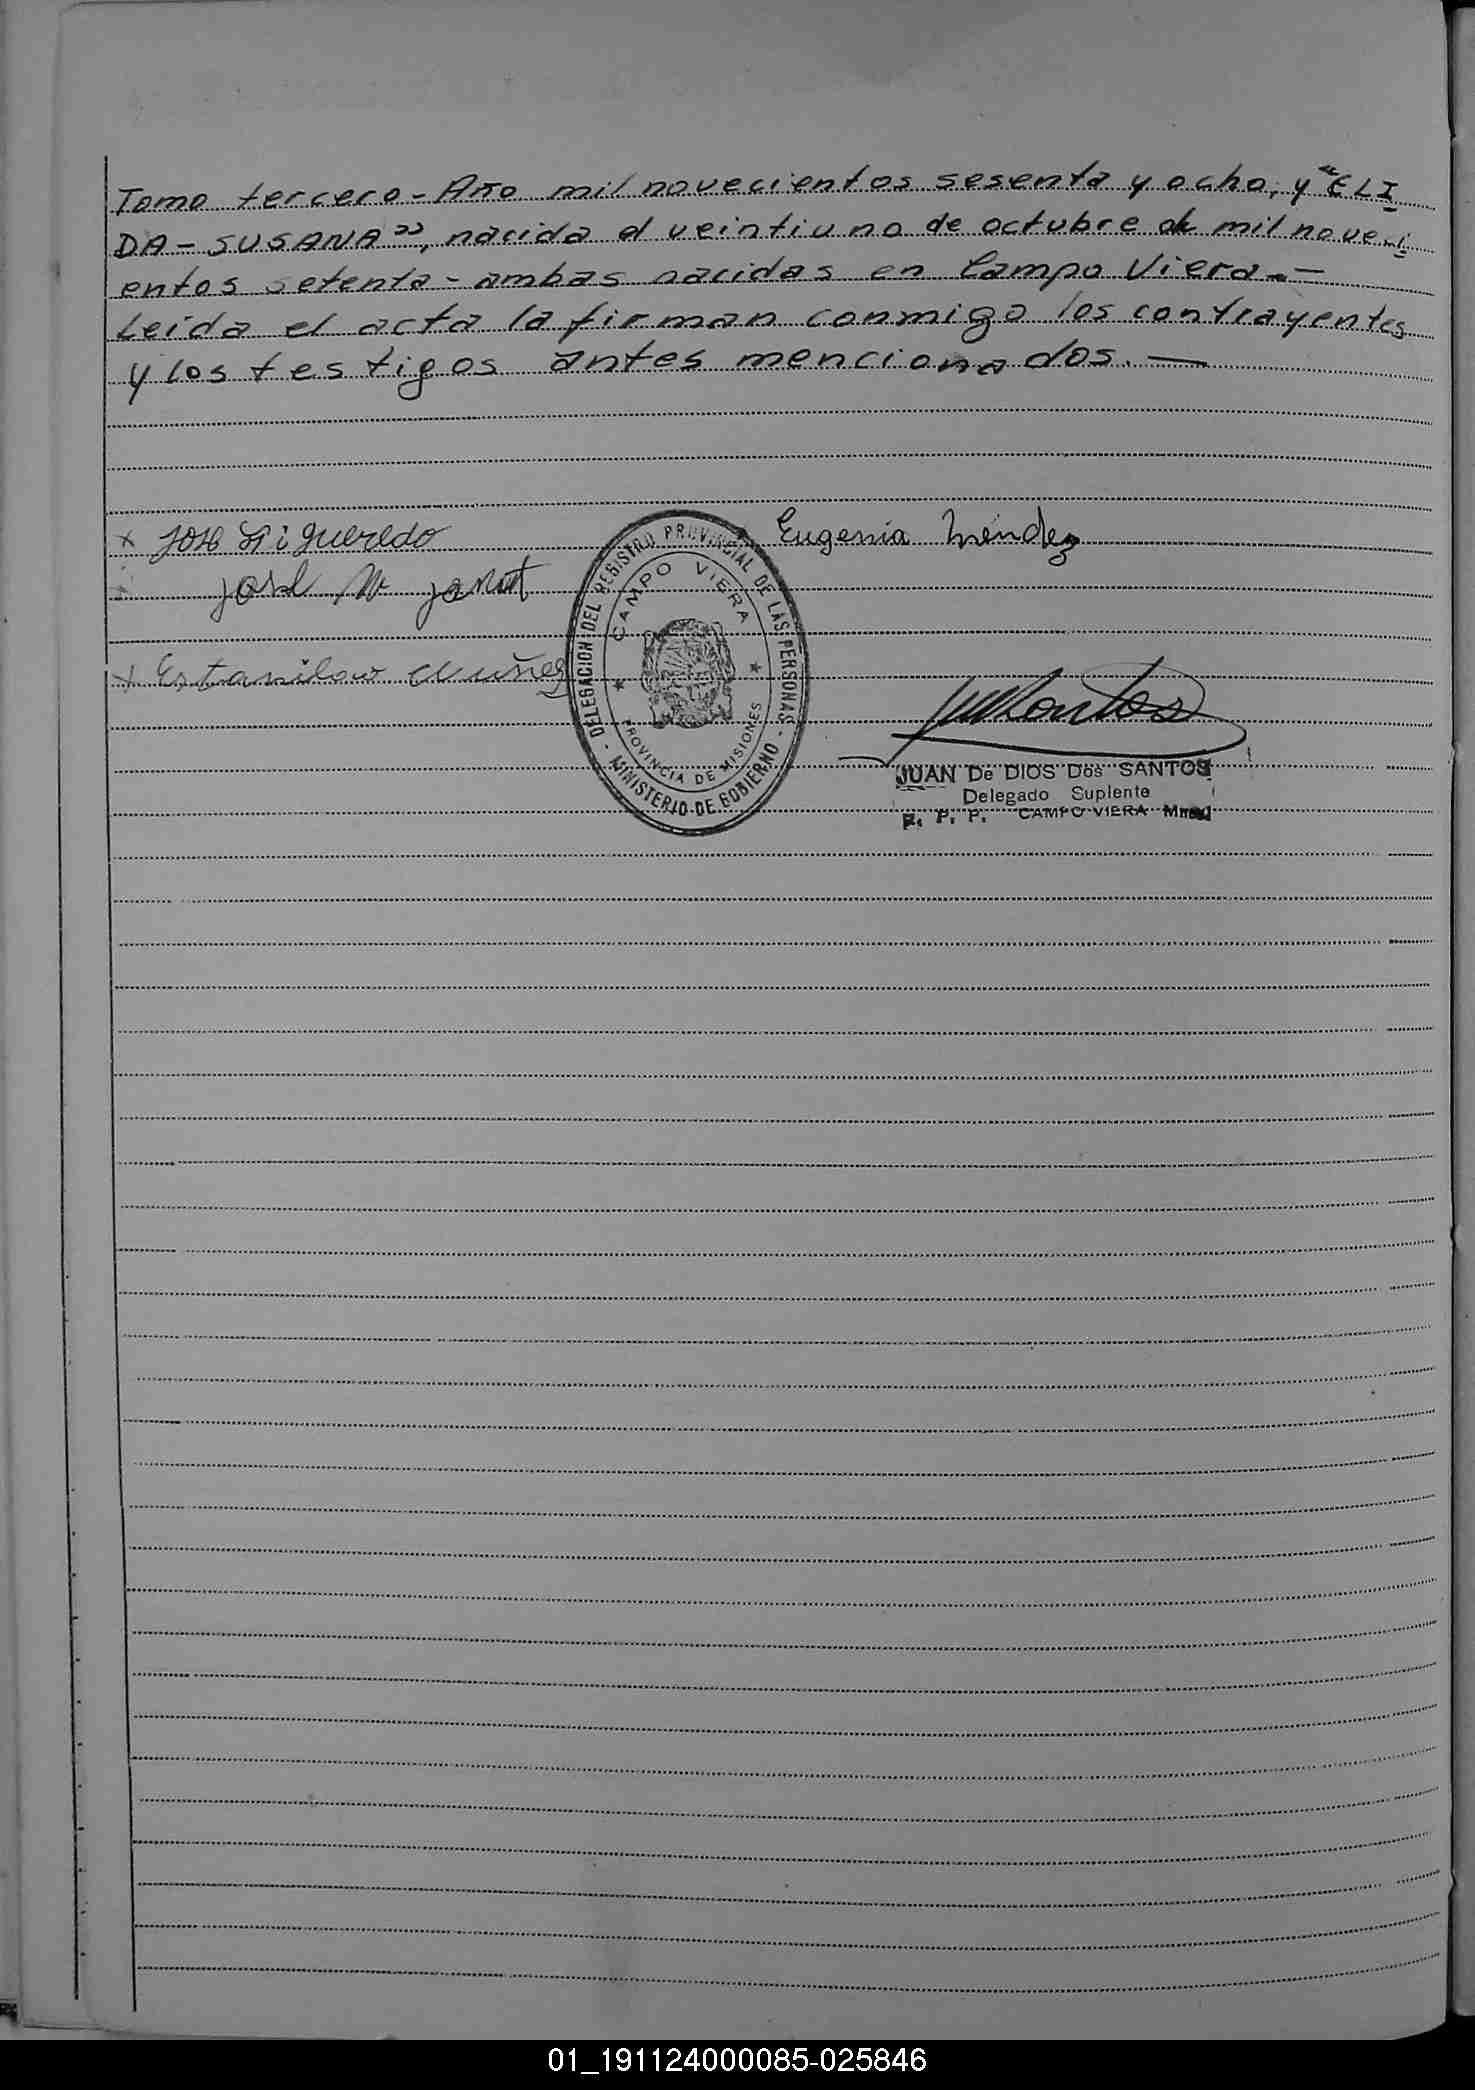 Tomo tercero - Año mil novecientos sesenta y ocho, y "ELI
DA - SUSANA", nacida el veintiuno de octubre de mil noveci
entos setenta - ambas nacidas en Campo Viera. -
Leída el acta la firman conmigo los contrayentes
y los testigos antes mencionados. —
x José Figueredo
Eugenia Méndez
José
x Estanilao Nuñez
DELEGACION DEL REGISTRO PROVINCIAL DE LAS PERSONAS
- MINISTERIO DE GOBIERNO -
CAMPO VIERA
PROVINCIA DE MISIONES
JUAN De DIOS Dos SANTOS
Delegado Suplente
R. P. P. CAMPO VIERA
01_191124000085-025846